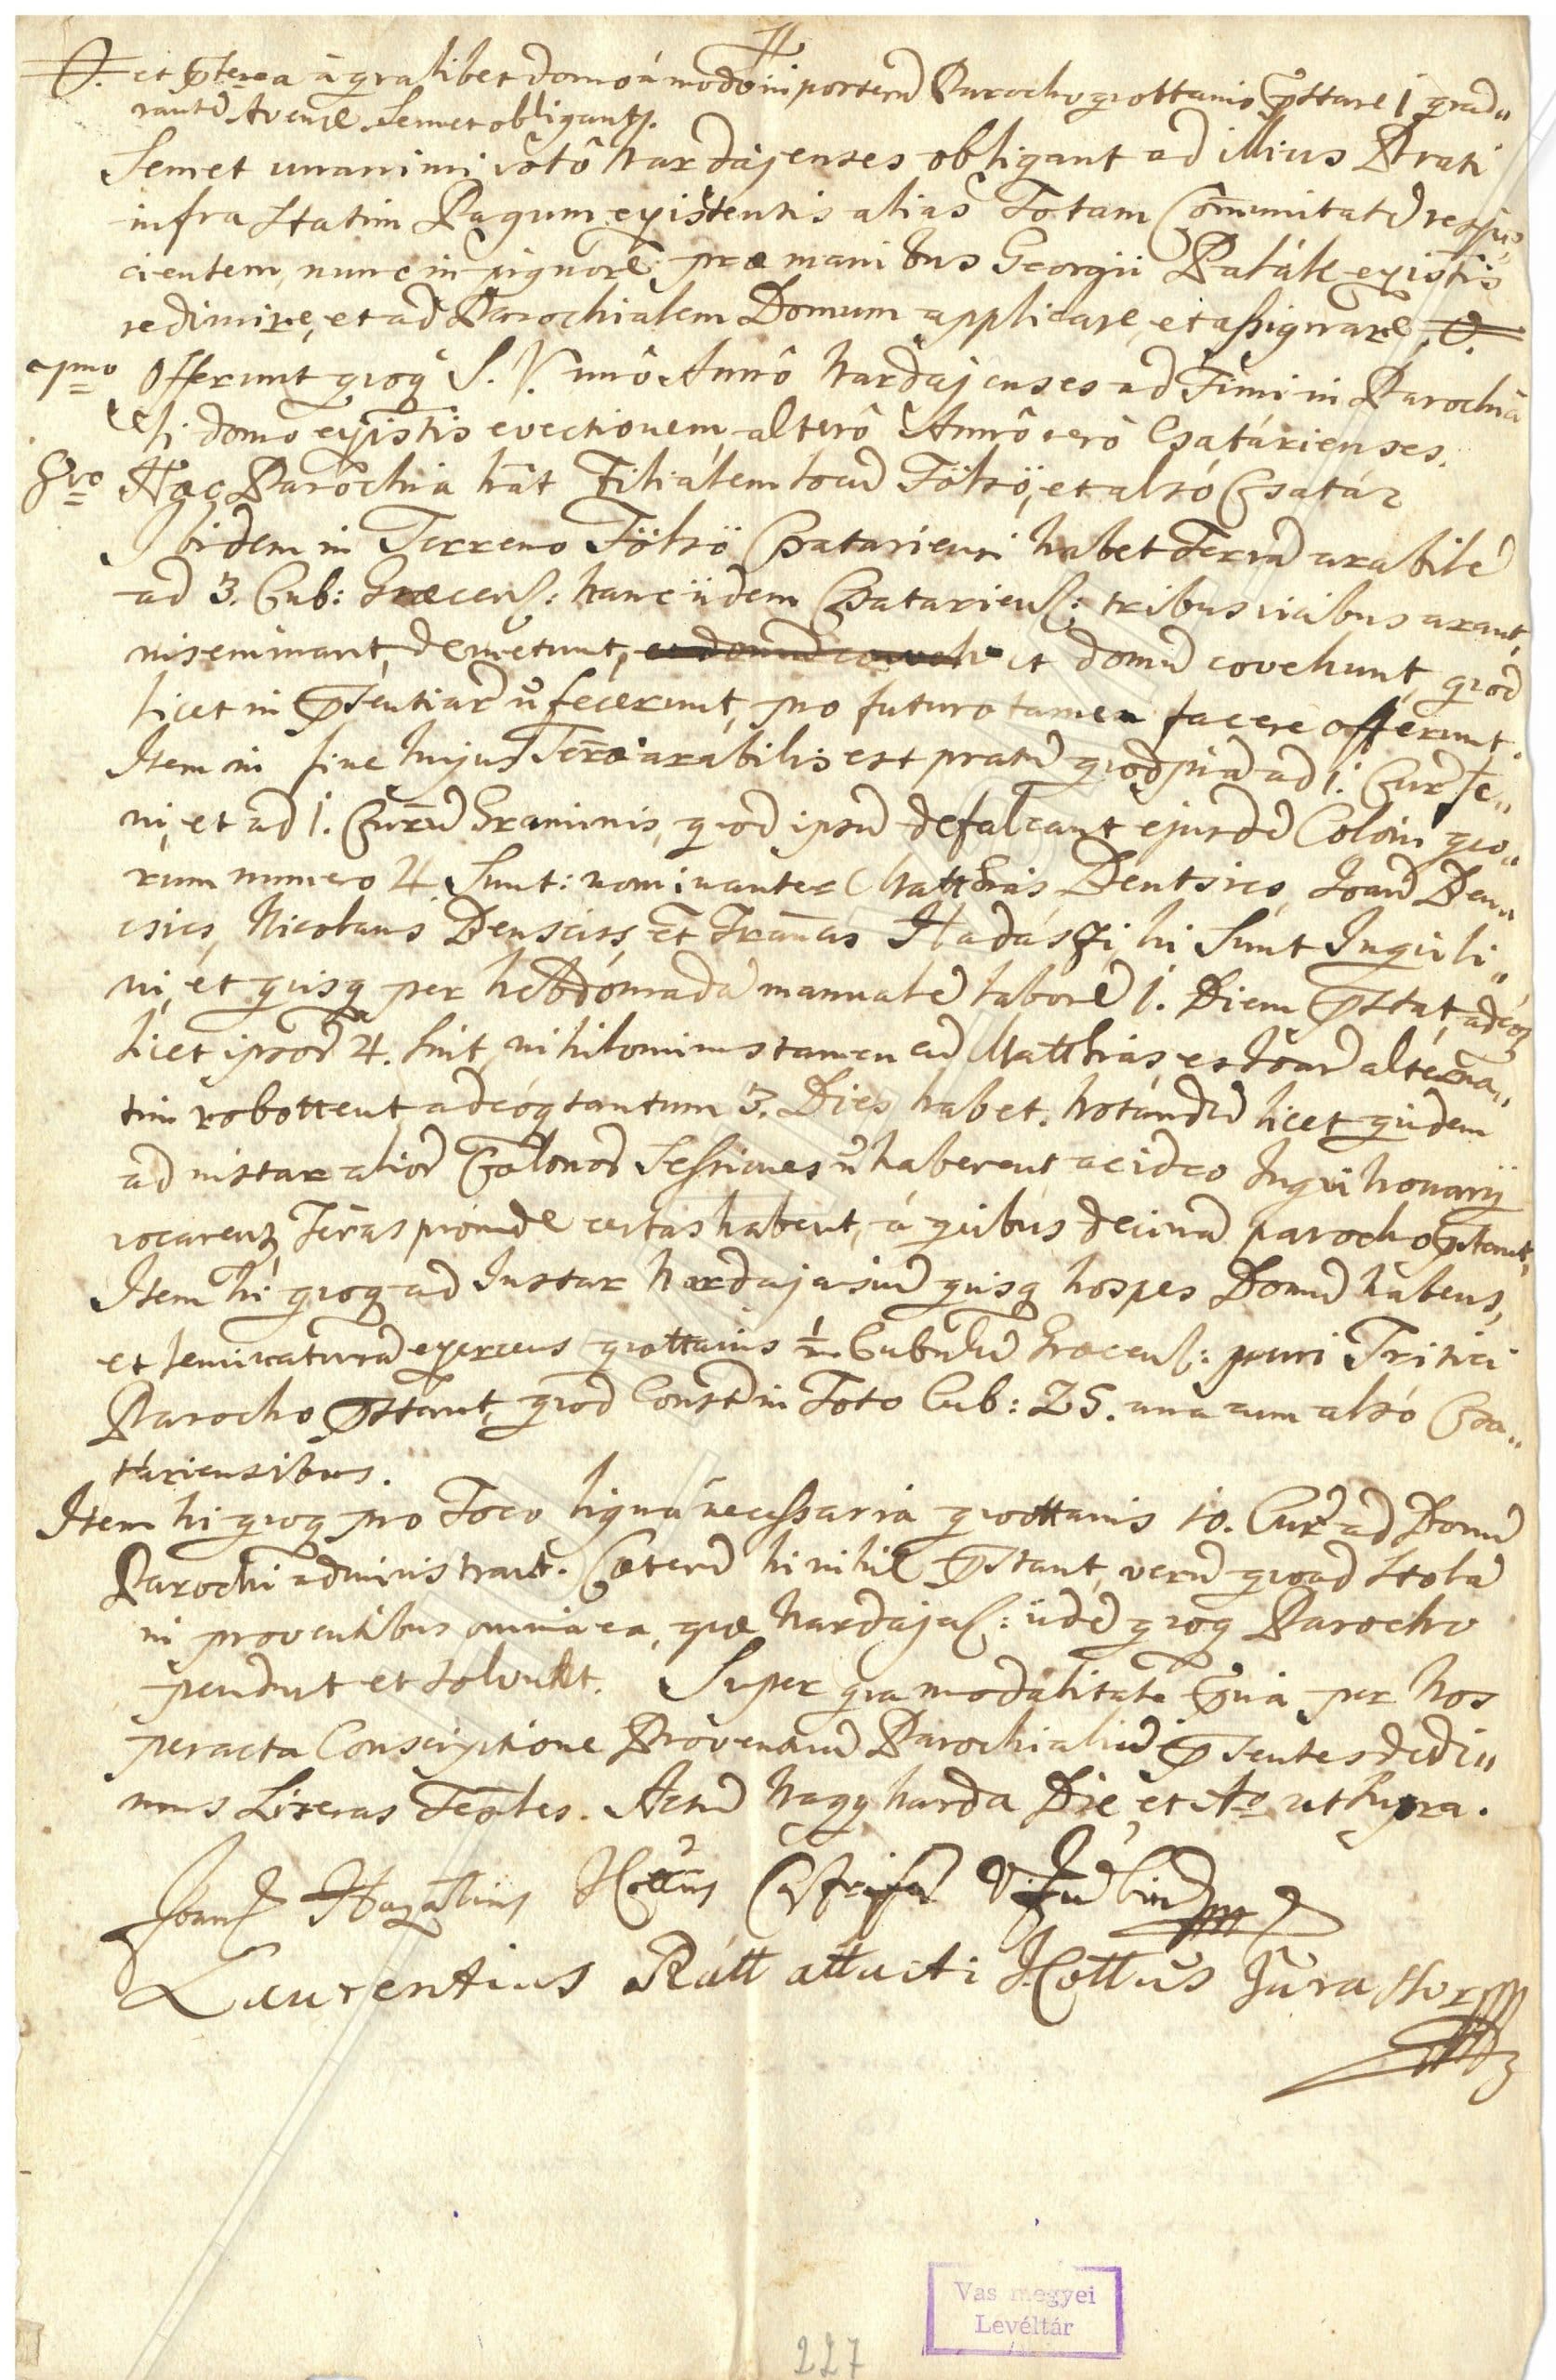 et pterea à qualibet domo à modo in posterū Parocho quottanis pstare 1 quad„
rantē Avenæ Semet obligant.
Semet unanimi votô Nardajenses obligant ad illius Prati
infra statim Pagum existentis alias Totam Cômunitatē respi„
cientem, nunc in pignore præ manibus Georgii Paták existis
redimire, et ad Parochialem Domum applicare, et assignare
7mo Offerunt quoq S. V. unô Annô Nardajenses ad Fimi in Parochia
li domo existis evectionem, alterô Annô verô Csatárienses.
8vo Hæc Parochia hât Filialem locū Fölsö, et alsó Csatár
Ibidem in Terreno Fölsö Csatariensi habet Terrā arabilē
ad 3. Cub: Græcens: hanc iidem Csatariens: tribus vicibus arant,
inseminant, demetunt, et domū covehunt, quod
licet in psentiarū n fecerunt, pro futuro tamen facere offerunt.
Item in fine hujus Teræ arabilis est pratū quodpiā ad 1. Cur fæ„
ni, et ad 1. Currū Graminis, quod ipsū defalcant ejusdē Coloni quo„
rum numero 4 Sunt: nominanter Matthias Dentsics, Joan̄ Den„
csics, Nicolaus Denscits, et Fran̄cis Hadászi, hi Sunt Inquili„
ni, et quisq per hebdomadā manualē laborē 1. Diem pstat, adeoq
licet ipsor 4. sint, nihilominus tamen cū Matthias, et Joan̄ alterna„
tim robottent, adeóq tantum 3. Dies habet. Notandū licet quidem
ad instar alior Colonor Sessiones n haberent ac ideo Inquilionarij
vocarent, Teras proinde certas habent, á quibus decimā parocho pstant,
Item hi quoq ad Instar Nardajasiū quisq hospes Domū habens,
et seminaturā exercens quottanis ½ Cubulū Græcens: puri Tritici
Parocho pstant, quod Constū in Toto Cub: 25. una cum alsó Csa„
táriensibus.
Item hi quoq pro Foco ligna necessaria quottanis 10. Cur ad Domū
Parochi administrant. Cæterū hi nihil pstant, verū quoad Stolā
in proventibus omnia ea, quæ Nardajas: iidē quoq Parocho
pendunt et solvunt. Super qua modalitate pvia per Nos
peracta Conscriptione Proventuū Parochialiū psentes dedi„
mus Literas Teales. Actū Nagy Narda Die, et Ao ut supra.
Laurentius Rátt Jura ssor
Vas megyei
Levéltár
227